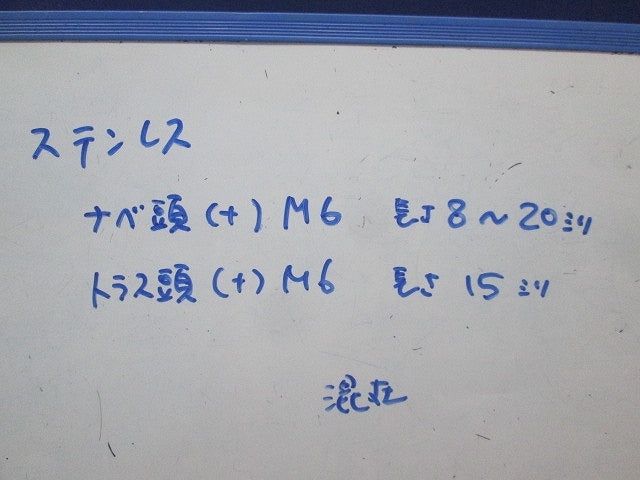 ステンレス
ナベ頭(+) M6 長さ8~20ミリ
トラス頭(+) M6 長さ 15ミリ
混在